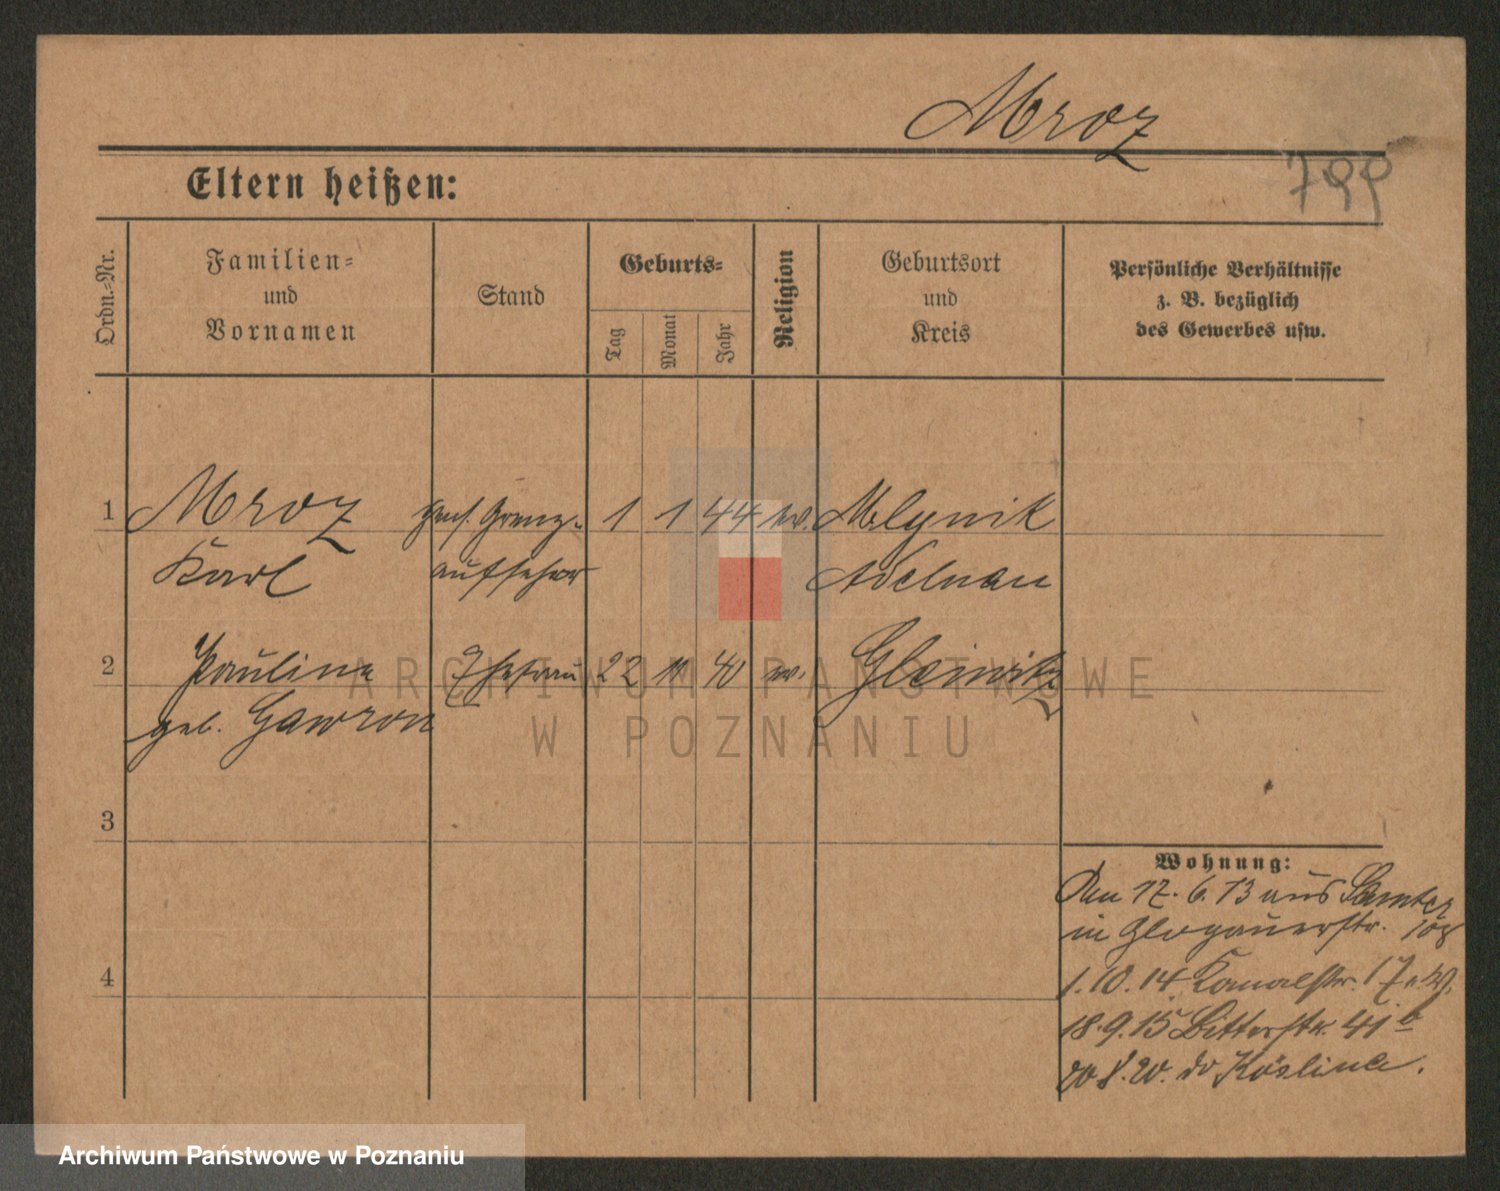 Mroz
799
Eltern heißen:
Ordn.-Nr.
Familien-
und
Vornamen
Stand
Geburts-
Tag
Monat
Jahr
Religion
Geburtsort
und
Kreis
Persönliche Verhältnisse
z. B. bezüglich
des Gewerbes usw.
1 Mroz Grenz- 1 1 44 Mlynik
Karl aufseher Adelnau
2 Pauline Ehefrau 22 11 40 Gleiwitz
geb. Gawron
3
4
Wohnung:
Den 17. 6. 13 aus Samter
in Glogauerstr. 108
1. 10. 14 Kanalstr. 17
18. 9. 15 Bitterstr. 41 b
20. 8. 20. do Köslina.
ARCHIWUM PAŃSTWOWE
W POZNANIU
Archiwum Państwowe w Poznaniu